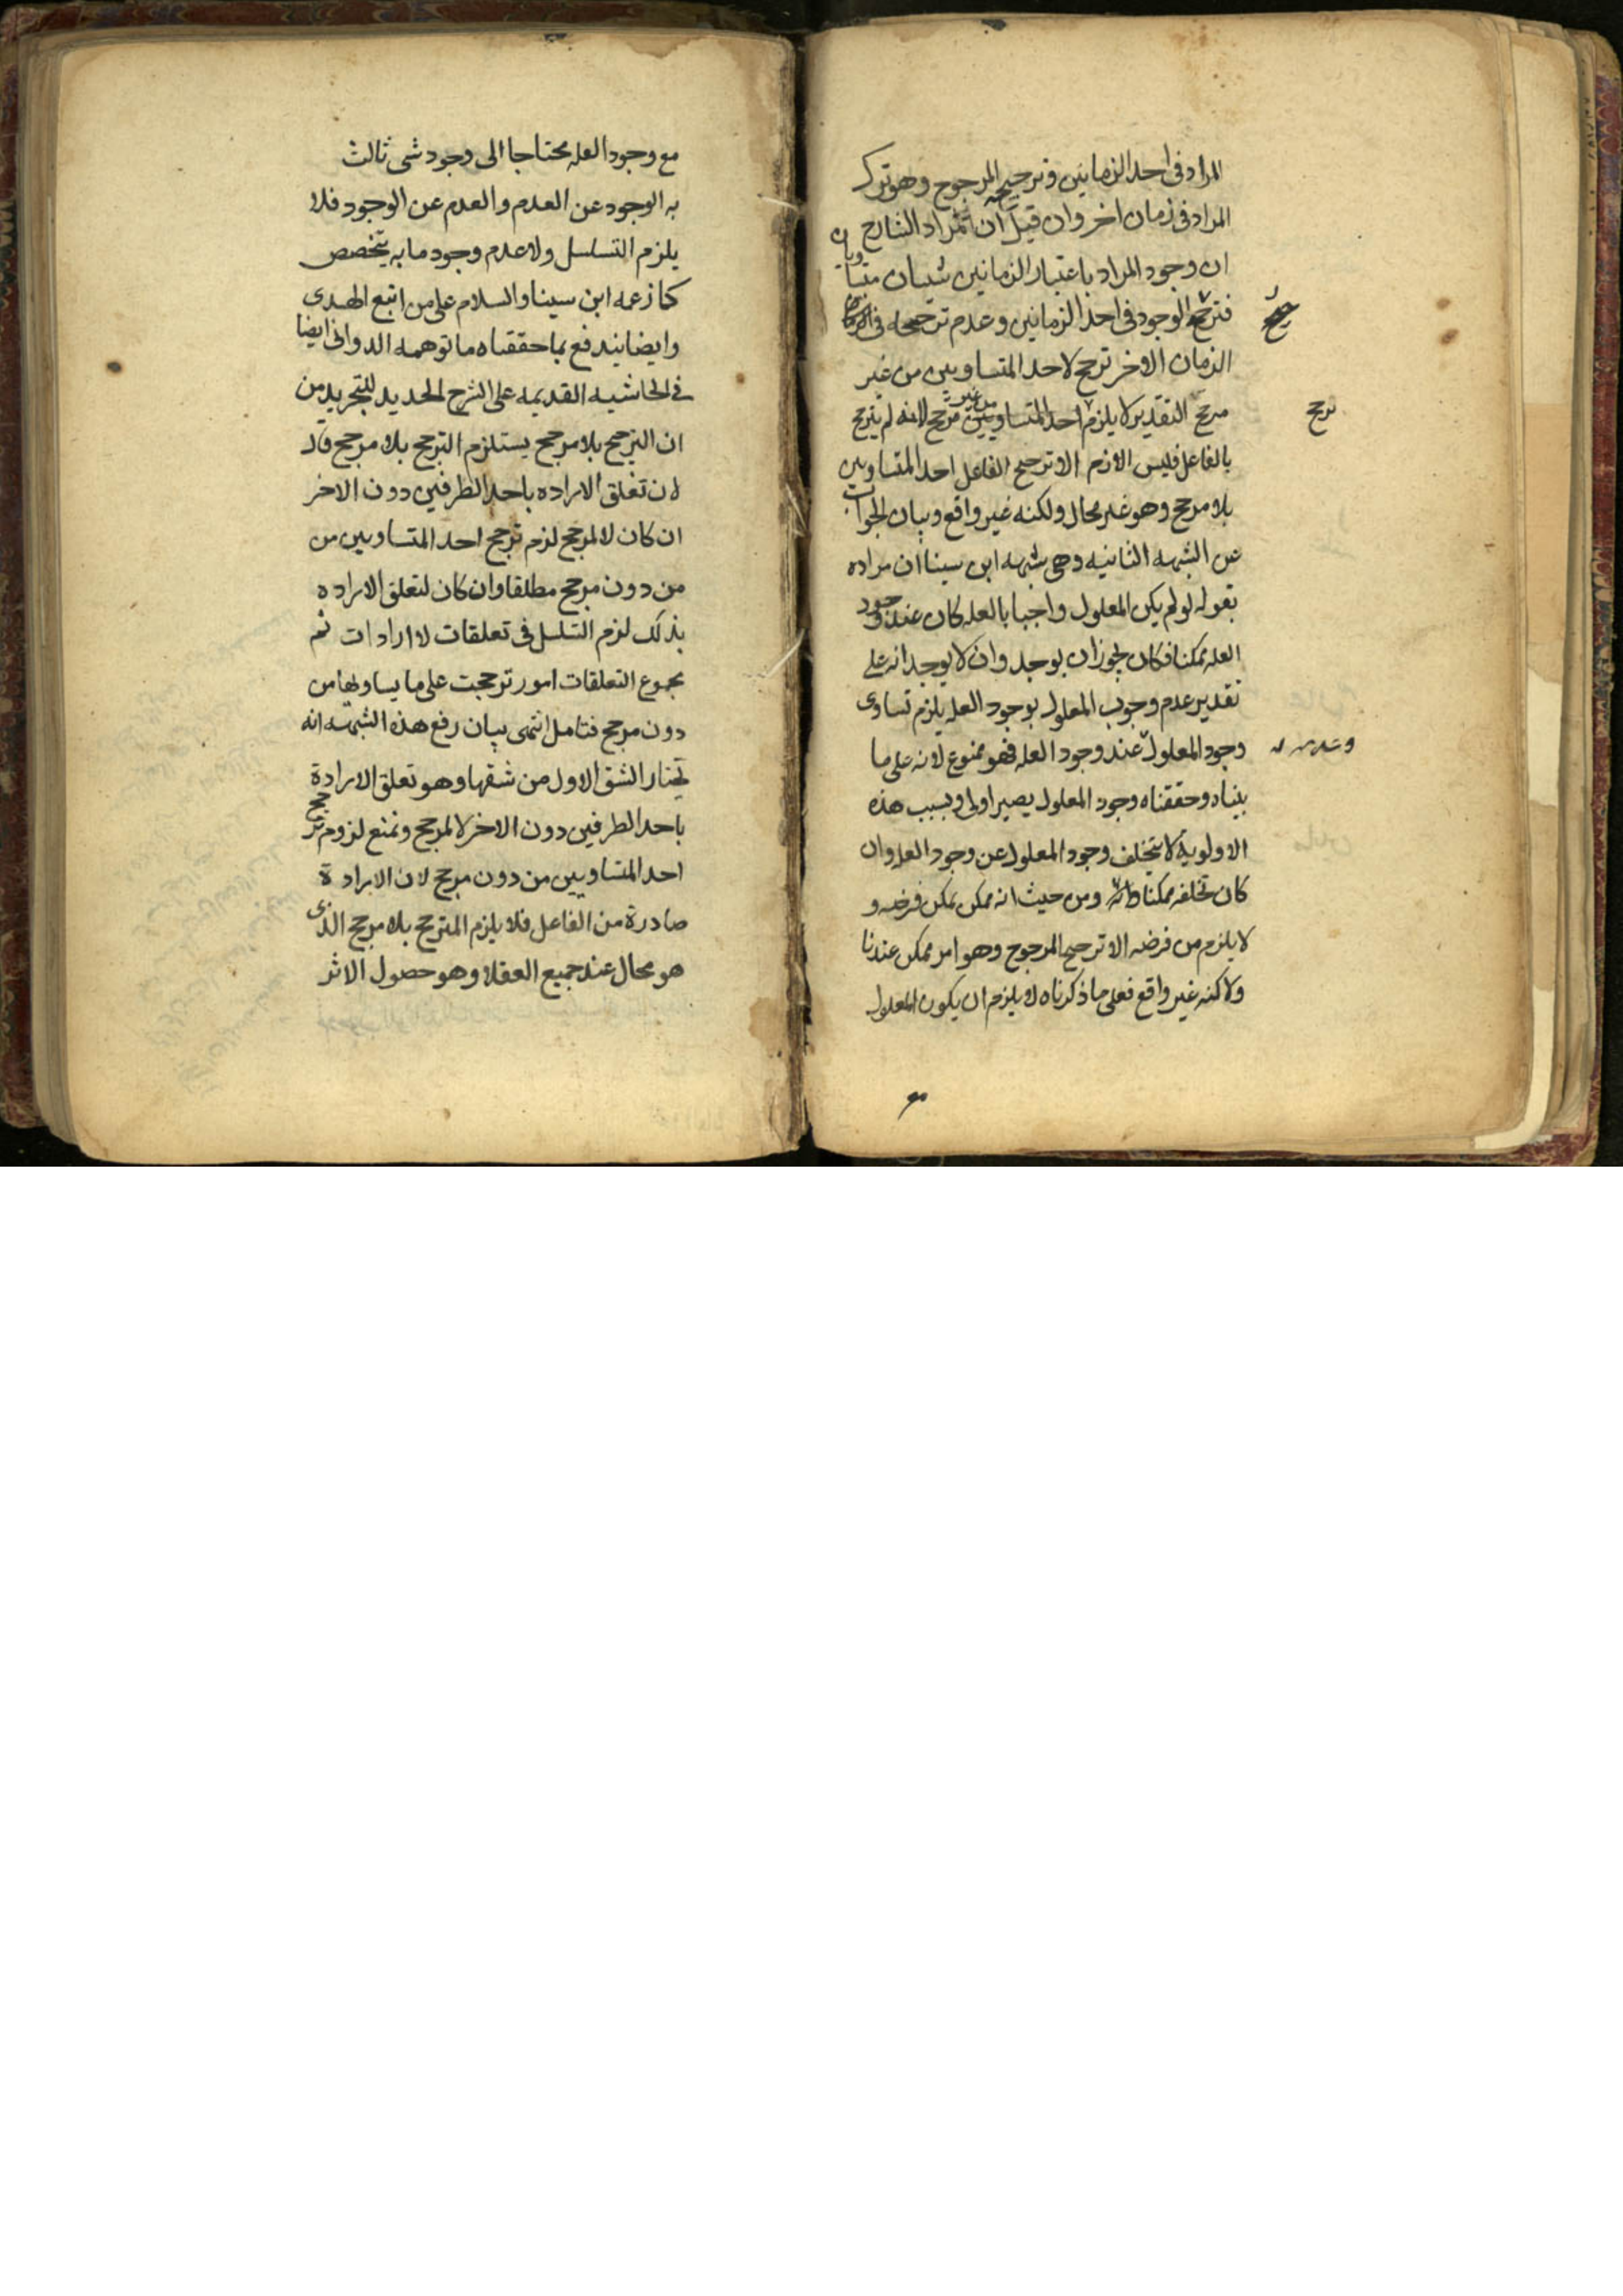 المراد فى احد الزمانين وترجيح المرجوح وهو ترك
المراد فى زمان اخر وان قيل ان مراد الشارح
ان وجود المراد باعتبار الزمانين شيان متساويان
فترجح الوجود فى احد الزمانين وعدم ترجحه فى
الزمان الاخر ترجح لاحد المتساويين من غير
مرجح التقدير لا يلزم احد المتساويين من غير مرجح لانه لم يترجح
ترجح
بالفاعل فليس الازم الا ترجيح الفاعل احد المتساويين
بلا مرجح وهو غير محال ولكنه غير واقع وبيان الجواب
عن الشبهه الثانيه وهى شبهه ابن سينا ان مراده
بقوله لو لم يكن المعلول واجبا بالعله كان عند وجود
العله ممكنا فكان يجوز ان يوجد وان لا يوجد انه على
تقدير عدم وجوب المعلول بوجود العله يلزم تساوى
وجود المعلول عند وجود العله فهو ممنوع لانه على ما
وعدمه
بيناه وحققناه وجود المعلول يصير اولى وبسبب هذه
الاولوية لا يتخلف وجود المعلول عن وجود العله وان
كان تخلفه ممكنا ومن حيث انه ممكن يمكن فرضه و
لا يلزم من فرضه الا ترجيح المرجوح وهو امر ممكن عندنا
ولاكنه غير واقع فعلى ما ذكرناه لا يلزم ان يكون المعلول
مع
مع وجود العله محتاجا الى وجود شى ثالث
به الوجود عن العدم والعدم عن الوجود فلا
يلزم التسلسل ولا عدم وجود ما به يتخصص
كما زعمه ابن سينا والسلام على من اتبع الهدى
وايضا يندفع بما حققناه ما توهمه الدوانى ايضا
فى الحاشيه القديمه على الشرح الجديد للتجريد من
ان الترجيح بلا مرجح يستلزم الترجح بلا مرجح قال
لان تعلق الاراده باحد الطرفين دون الاخر
ان كان لا لمرجح لزم ترجح احد المتساويين من
من دون مرجح مطلقا وان كان لتعلق الاراده
بذلك لزم التسلسل فى تعلقات لا ارادات ثم
مجموع التعلقات امور ترجحت على ما يساويها من
دون مرجح فتامل انتهى بيان رفع هذه الشبهه انه
يختار الشق الاول من شقها وهو تعلق الارادة
باحد الطرفين دون الاخر لا لمرجح ونمنع لزوم ترجح
احد المتساويين من دون مرجح لان الارادة
صادرة من الفاعل فلا يلزم الترجح بلا مرجح الذى
هو محال عند جميع العقلا وهو حصول الاثر